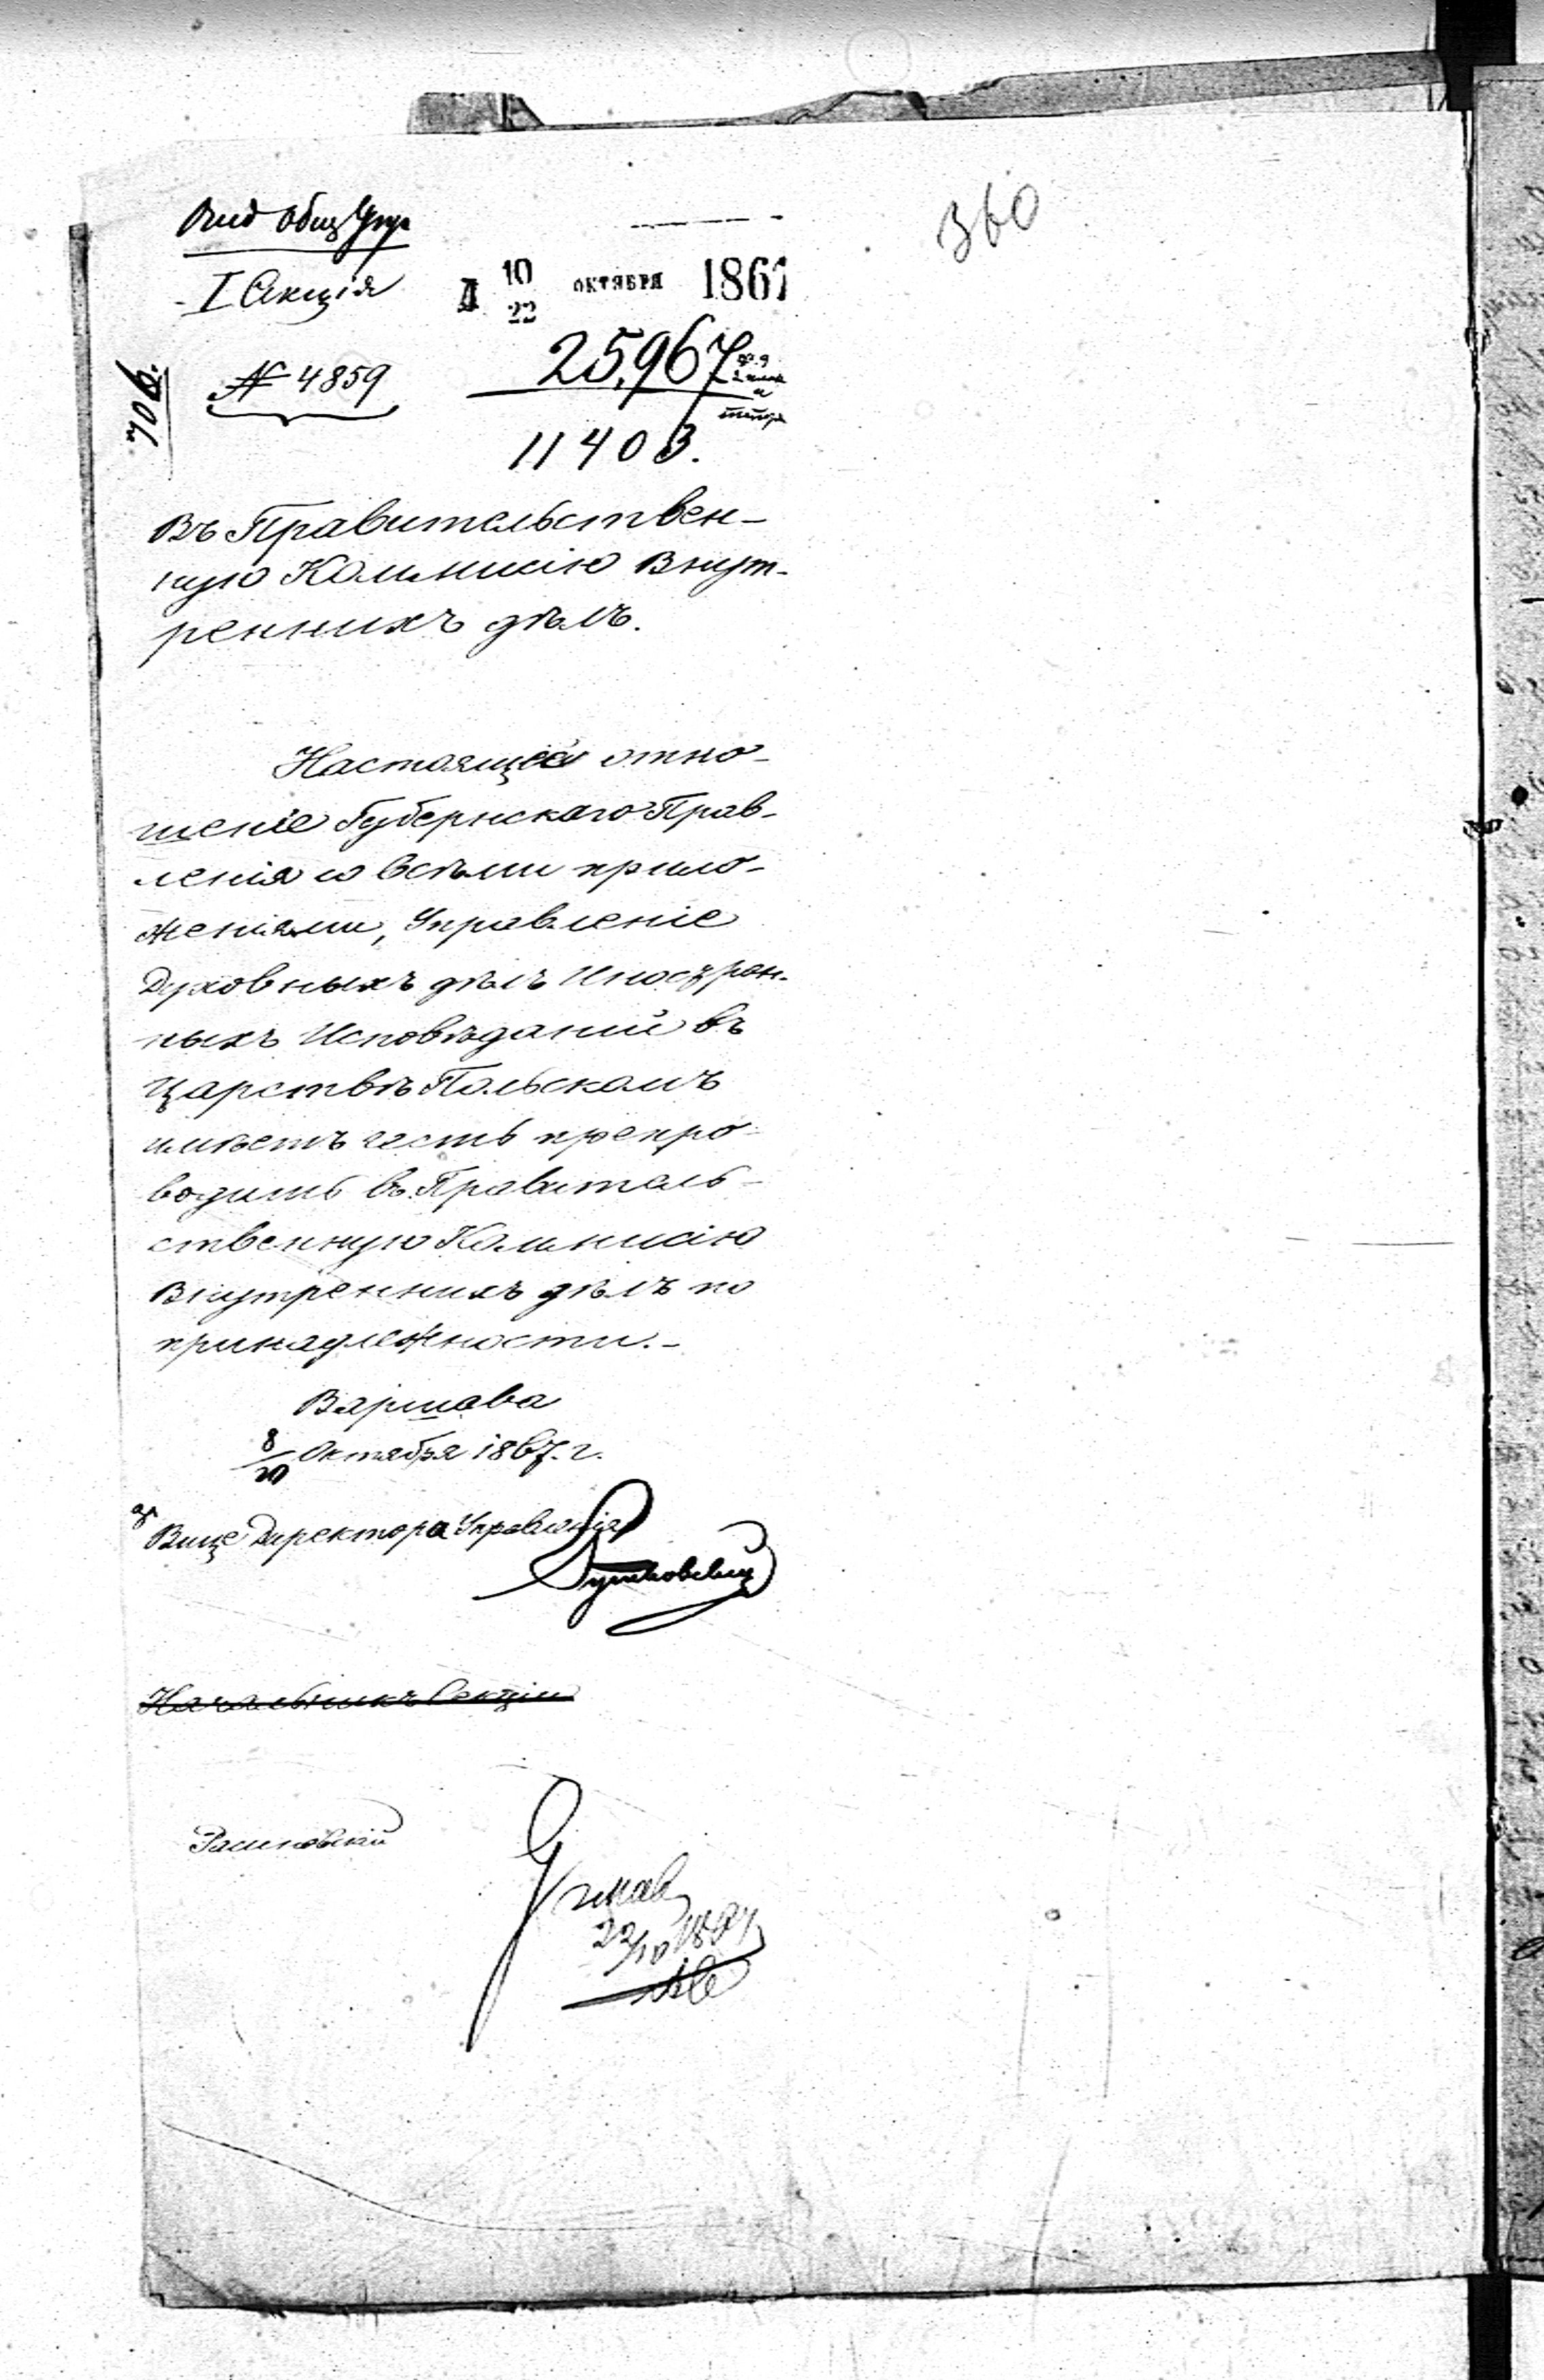 360
I Секція
Д 10/22 ОКТЯБРЯ 1867
№ 4859
25,967
11403.
706.
Въ Правительствен-
ную Коммисію Внут-
реннихъ дѣлъ.
Настоящее отно-
шеніе Губернскаго Прав-
ленія со всѣми прило-
женіями, Управленіе
Духовныхъ дѣлъ Иностран-
ныхъ Исповѣданій въ
Царствѣ Польскомъ
имѣетъ честь препро-
водить въ Правитель-
ственную Коммисію
Внутреннихъ дѣлъ по
принадлежности.-
Варшава
8/20 Октября 1867. г.
Вице Директора Управленія
Начальникъ Секціи
22/10 1867